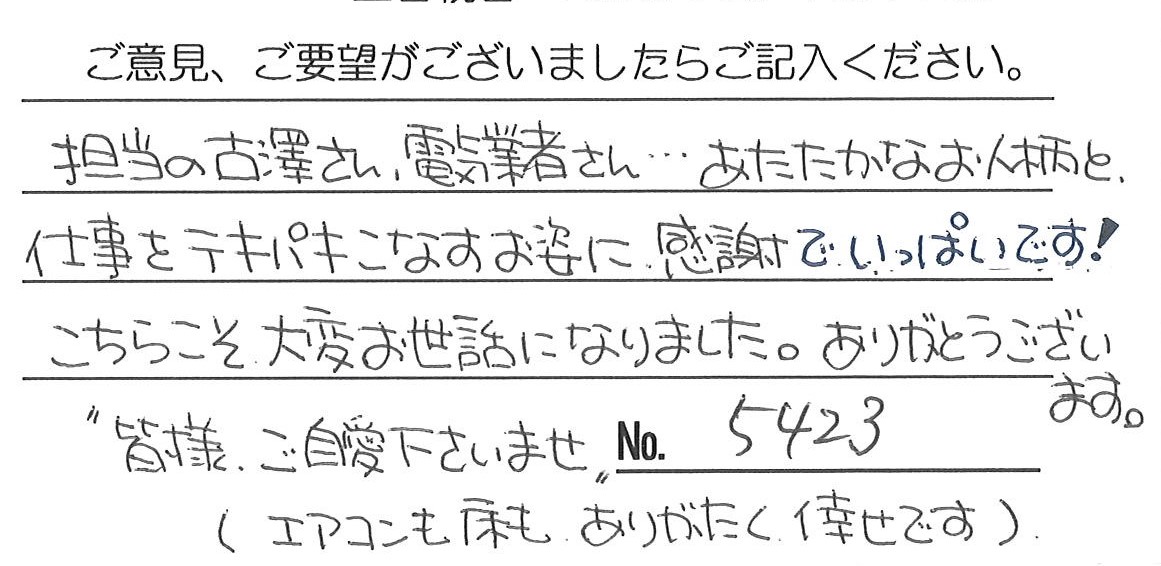 ご意見、ご要望がございましたらご記入ください。
担当の古澤さん、電気業者さん…あたたかなお人柄と、
仕事をテキパキこなすお姿に、感謝でいっぱいです!
こちらこそ、大変お世話になりました。ありがとうござい
ます。
〝皆様、ご自愛下さいませ〟 No. 5423
(エアコンも床も、ありがたく、倖せです).